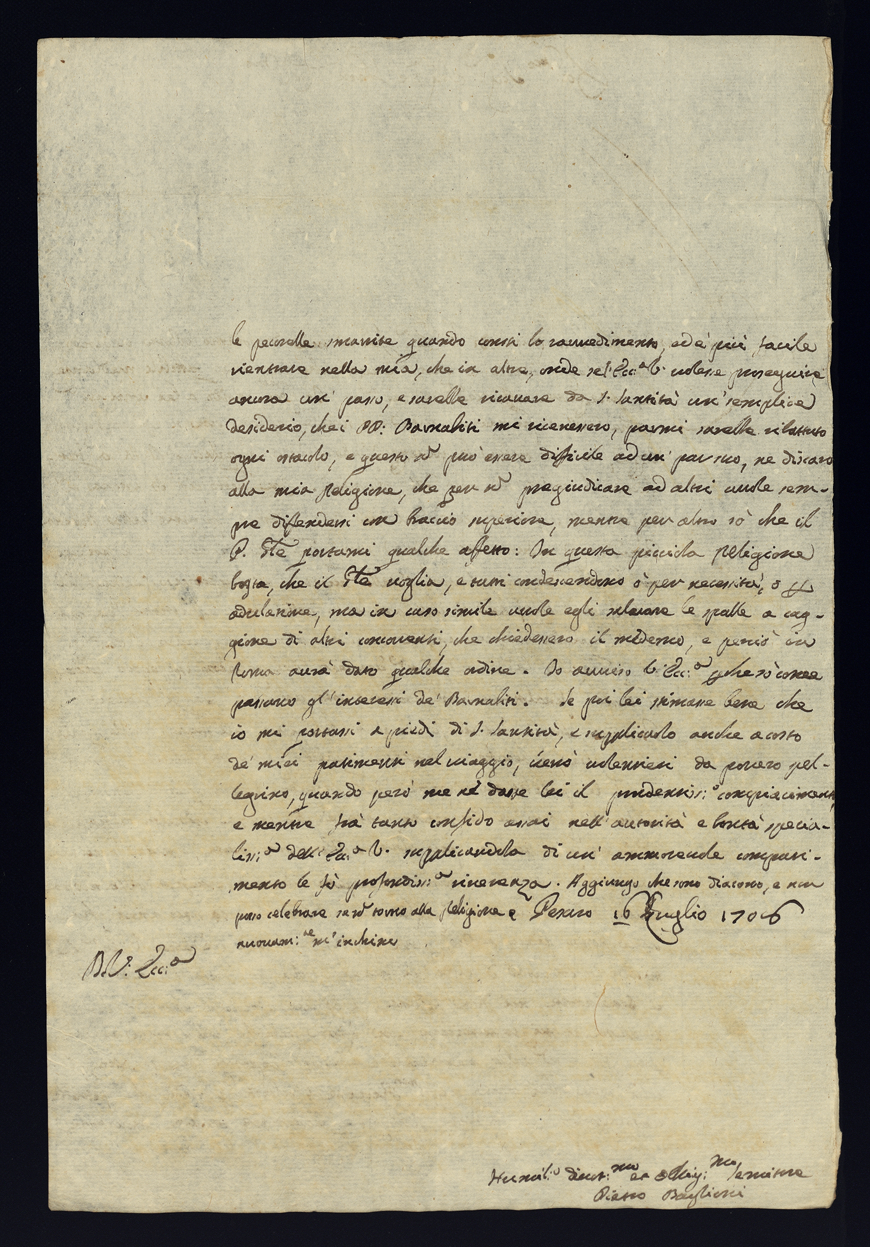 le pecorelle smarrite quando consti lo ravvedimento, ed è più facile
rientrare nella mia, che in altre, onde se l'Ecc:a V. volesse proseguire
ancora un' passo, e farelle ricavare da S. Santità un' semplice
desiderio, che i PP: Barnabiti mi ricevessero, parmi sarelle ributtato
ogni ostacolo, e questo nõ può essere difficile ad un' par suo, ne discaro
alla mia Religione, che per nõ pregiudicare ad altri vuole sem-
pre difendersi con braccio superiore, mentre per altro sò che il
P. Gñle portami qualche affetto: In questa picciola Religione
basta, che il Gñle voglia, e tutti condescendono ò per necessità, ò
adulatione, ma in caso simile vuole egli salvare le spalle a cag-
gione di altri concorrenti, che chiedessero il medemo, e perciò in
Roma avrà dato qualche ordine. Io avviso V. Ecc:a che sò come
passano gl' interessi de' Barnabiti. Se poi lei stimasse bene che
io mi portassi a piedi di S. Santità, e supplicarlo anche a costo
de' miei patimenti nel viaggio, verrò volentieri da povero pel-
legrino, quando però me nè dasse lei il prudentiss:o compiacimento
e mentre frà tanto confido assai nell' autorità e bontà specia-
liss:a dell' Ecc:a V. supplicandola di un' amorevole compati-
mento le fò profondiss:a riverenza. Aggiungo che sono diacono, e non
posso celebrare se nõ torno alla Religione e Pesaro 16 Luglio 1706
nuovam:te m' inchino
Di V. Ecc:a
Humil:o divot:mo et oblig:mo servitore
Pietro Baglioni